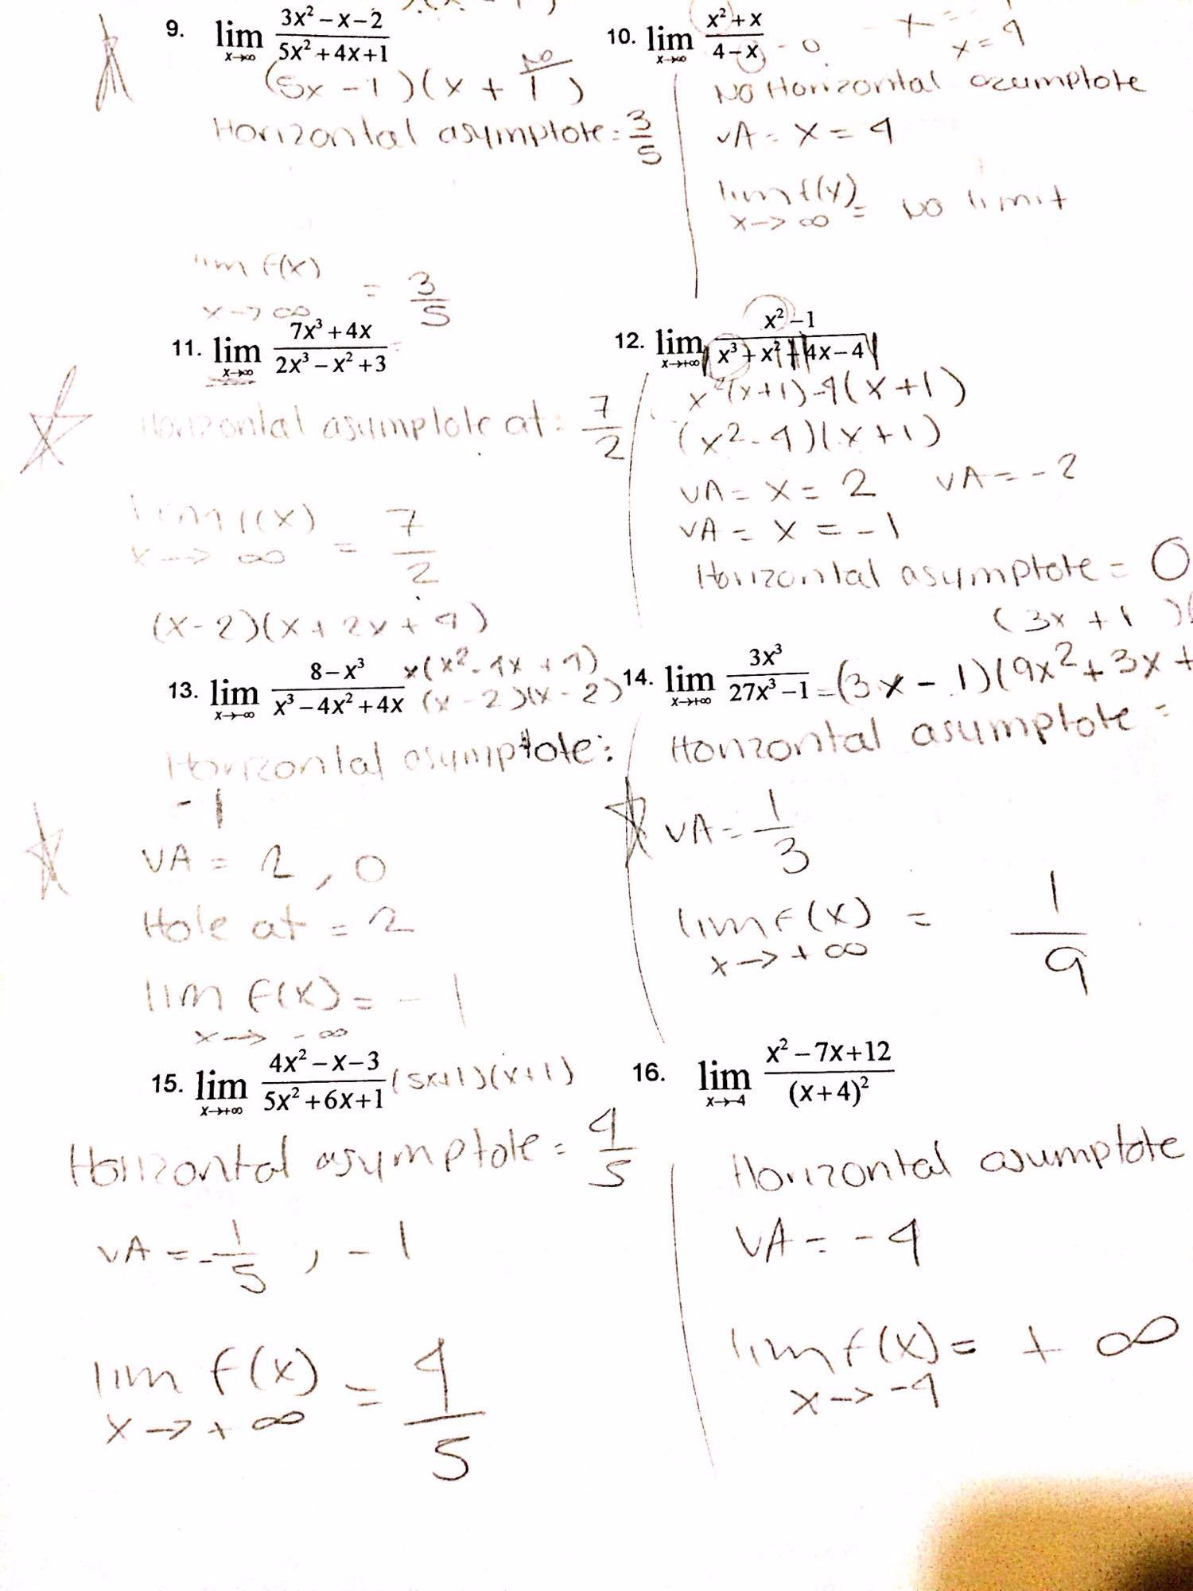 9. lim x→∞ 3x² – x – 2 / 5x² + 4x + 1
(5x – 1)(x + 1)
NO
Horizontal asymptote: 3/5
lim f(x) x→∞ = 3/5
10. lim x→∞ x² + x / 4 – x
x = 4
NO Horizontal asumptote
VA = x = 4
lim f(x) x→∞ = NO limit
11. lim x→∞ 7x³ + 4x / 2x³ – x² + 3
Horizontal asumptote at: 7/2
lim f(x) x→∞ = 7/2
12. lim x→+∞ x² – 1 / x³ + x² – 4x – 4
x²(x+1) – 4(x+1)
(x² – 4)(x+1)
VA = x = 2 VA = –2
VA = x = –1
Horizontal asymptote = 0
(x – 2)(x + 2x + 4)
13. lim x→–∞ 8 – x³ / x³ – 4x² + 4x
x(x² – 4x + 4)
(x – 2)(x – 2)
Horizontal asymptote:
–1
VA = 2, 0
Hole at = 2
lim f(x) = –1
x→ –∞
(3x + 1)(
14. lim x→+∞ 3x³ / 27x³ – 1 = (3x – 1)(9x² + 3x +
Horizontal asumptote =
VA = 1/3
lim f(x) x→+∞ = 1/9
15. lim x→+∞ 4x² – x – 3 / 5x² + 6x + 1 (5x+1)(x+1)
Horizontal asymptote = 4/5
VA = –1/5, –1
lim f(x) x→+∞ = 4/5
16. lim x→–4 x² – 7x + 12 / (x + 4)²
Horizontal asumptote
VA = –4
lim f(x) = +∞
x→ –4